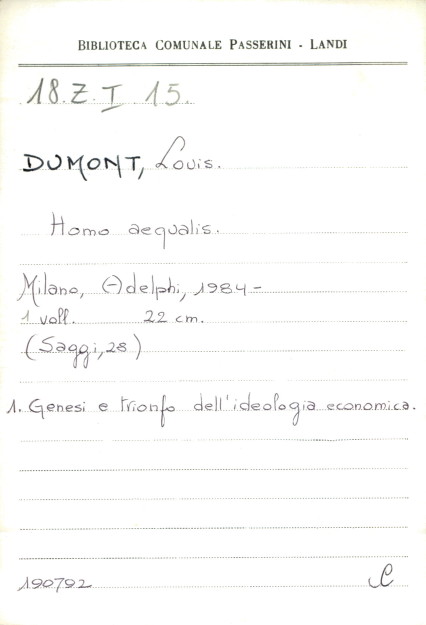 BIBLIOTECA COMUNALE PASSERINI - LANDI
18. Z. I 15.
DUMONT, Louis.
Homo aequalis.
Milano, Adelphi, 1984 -
1 voll. 22 cm.
(Saggi, 28)
1. Genesi e trionfo dell'ideologia economica.
190792